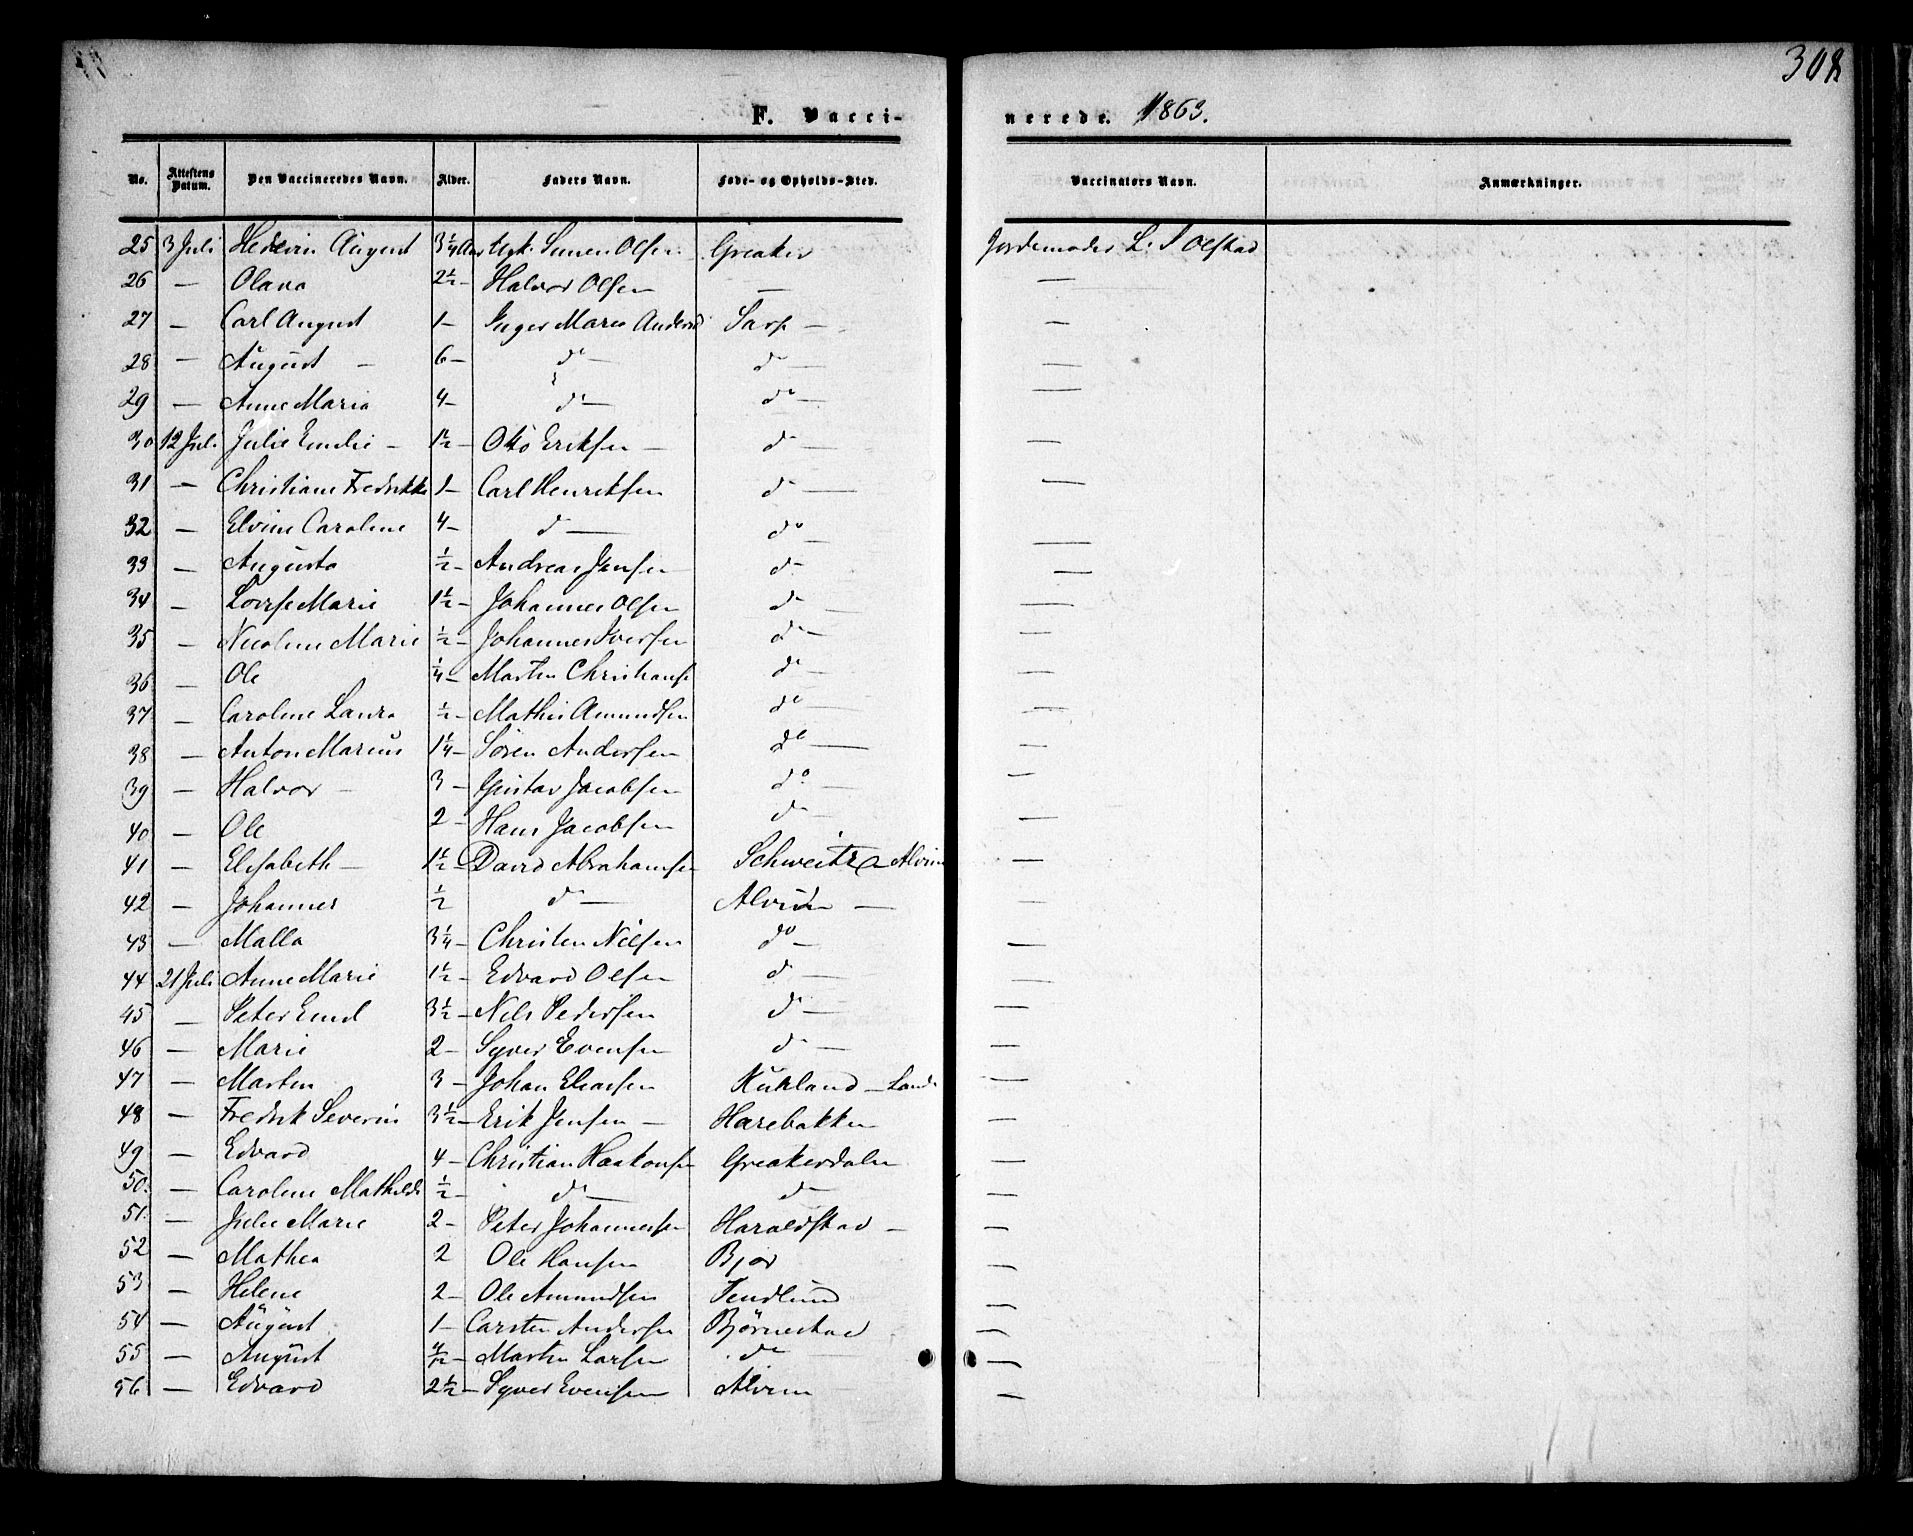 308
F. Vacci-
nerede. 1863.
No. Attestens Datum. Den Vaccineredes Navn. Alder. Faders Navn. Føde- og Opholds-Sted. Vaccinators Navn. Anmærkninger.
25 3 Juli August 3 1/4 Aar Simen Olsen Greaker Jordemoder L. Olstad
26 — Olava 2 1/2 — Halvor Olsen — —
27 — Carl August 1 — Inger Marie Sarp — —
28 — August — 6 — do — do — —
29 — Anne Maria 4 — do — do — —
30 12 Juli Julie Emilie — 1 1/2 — Otto Eriksen — do — —
31 — Christiane Fredrikke 1 — Carl Henriksen do — —
32 — Elvine Caroline 4 — do — do — —
33 — Augusta 1/2 — Andreas Jensen do —
34 — Lovise Marie 1 1/2 — Johannes Olsen do — —
35 — Nicoline Marie 1/2 — Johannes Iversen do — —
36 — Ole 1/4 — Martin Christians do — —
37 — Caroline Laura 1/2 — Mathis Amundsen do — —
38 — Anton Marius 1 1/4 — Søren Andersen do — —
39 — Halvor — 3 — Gustav Jacobsen do — —
40 — Ole 2 — Hans Jacobsen do — —
41 — Elisabeth — 1 1/2 — David Abrahamsen Schweitz Alvim —
42 — Johannes 1/2 do — Alvim — —
43 — Malla 3 1/4 — Christen Nilsen do — —
44 21 Juli Anne Marie 1 1/2 — Edvard Olsen do — —
45 — Peter Emil 3 1/2 — Nils Pedersen do — —
46 — Marie 2 — Syver Evensen do — —
47 — Martin 3 — Johan Eliassen Kurland — —
48 — Fredrik Severin 3 1/2 — Erik Jensen — Harebakken —
49 — Edvard 4 — Christian Haakonsen Greakerdalen —
50. — Caroline Mathilde 1/2 — do — do —
51. — Julie Marie 2 — Peter Johannessen Haraldstad — —
52 — Mathea 2 Ole Hansen Bjor —
53 — Helene 2 — Ole Amundsen Tendlund —
54 — August 1 — Carsten Andersen Bjørnestad —
55 — August — Martin Larsen do — —
56 — Edvard 2 1/2 — Syver Evensen Alvim —